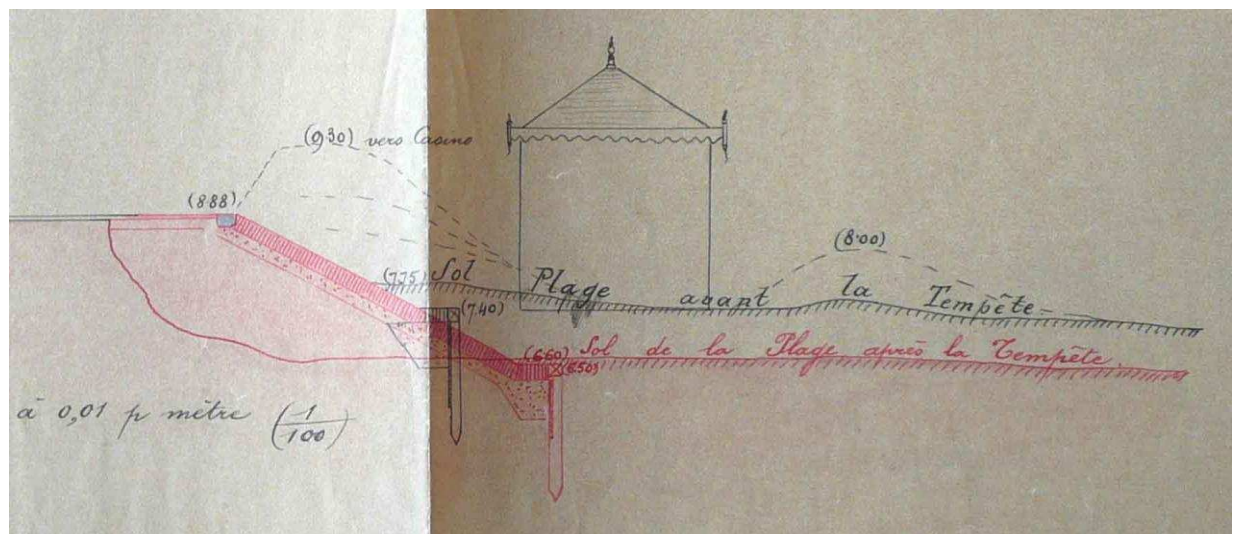 (9.30) vers Casino
(8.88)
(8.00)
(7.75) Sol Plage avant la Tempête
(7.40)
(6.60) Sol de la Plage après la Tempête.
(6.50)
à 0,01 p mètre (1/100)